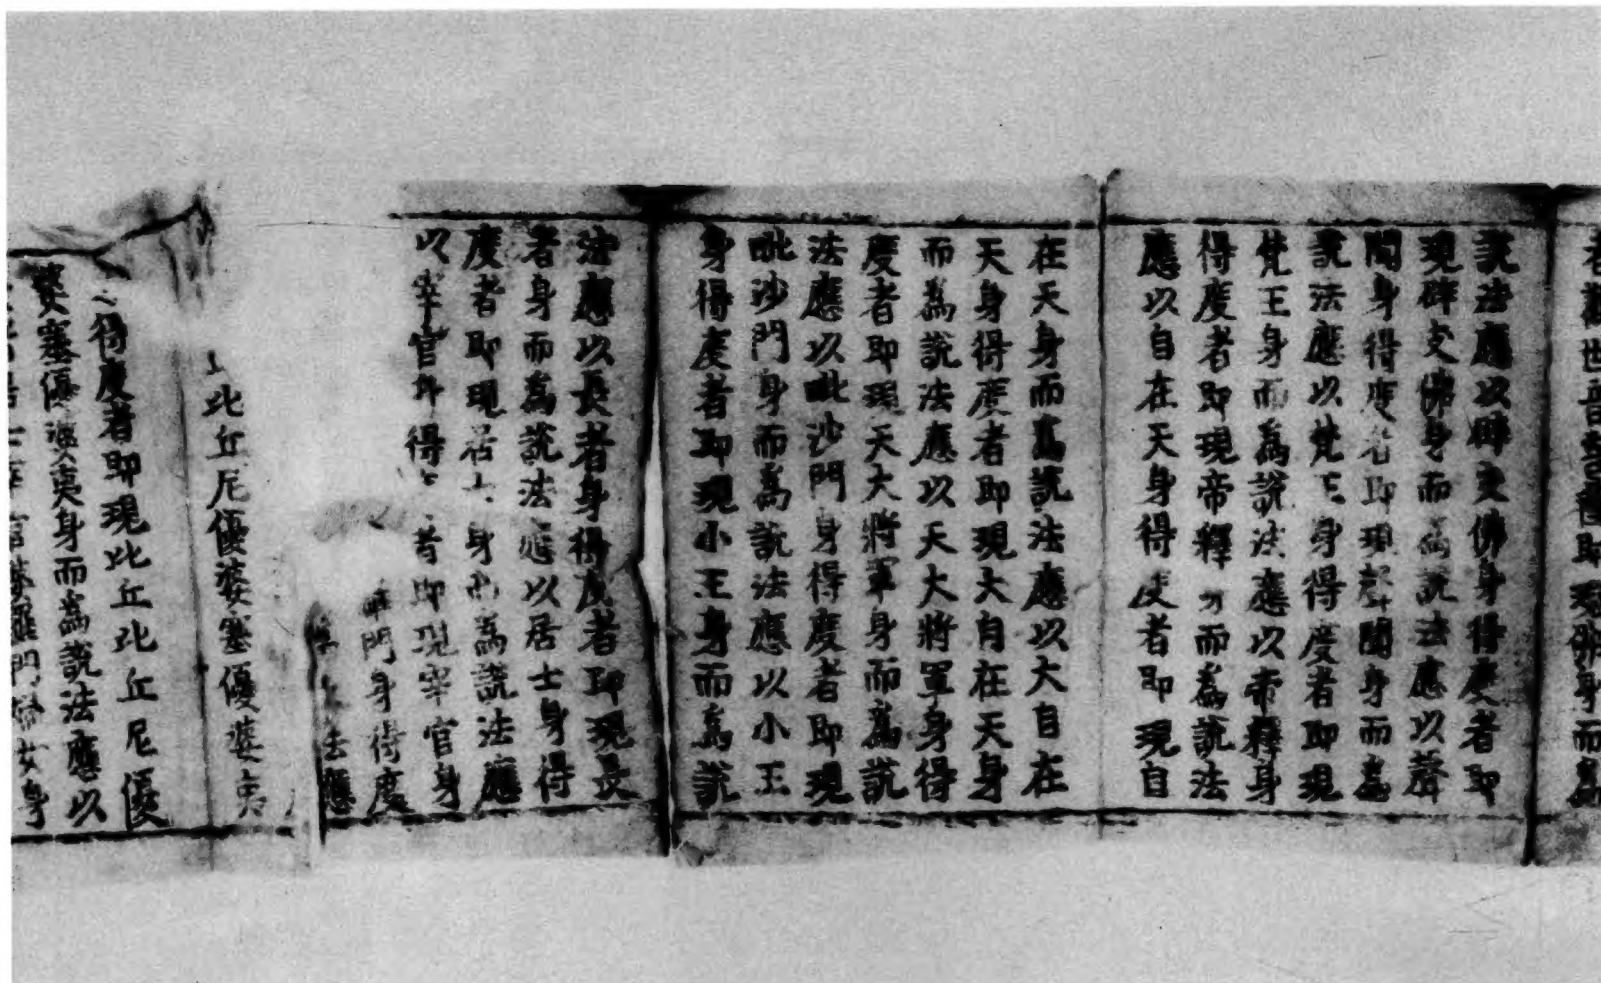 者觀世音菩薩即現佛身而為
說法應以辟支佛身得度者即
現辟支佛身而為說法應以聲
聞身得度者即現聲聞身而為
說法應以梵王身得度者即現
梵王身而為說法應以帝釋身
得度者即現帝釋身而為說法
應以自在天身得度者即現自
在天身而為說法應以大自在
天身得度者即現大自在天身
而為說法應以天大將軍身得
度者即現天大將軍身而為說
法應以毗沙門身得度者即現
毗沙門身而為說法應以小王
身得度者即現小王身而為說
法應以長者身得度者即現長
者身而為說法應以居士身得
度者即現居士身而為說法應
以宰官身得 者即現宰官身
門身得度
法應
比丘尼優婆塞優婆夷
得度者即現比丘比丘尼優
婆塞優婆夷身而為說法應以
居士宰官婆羅門婦女身